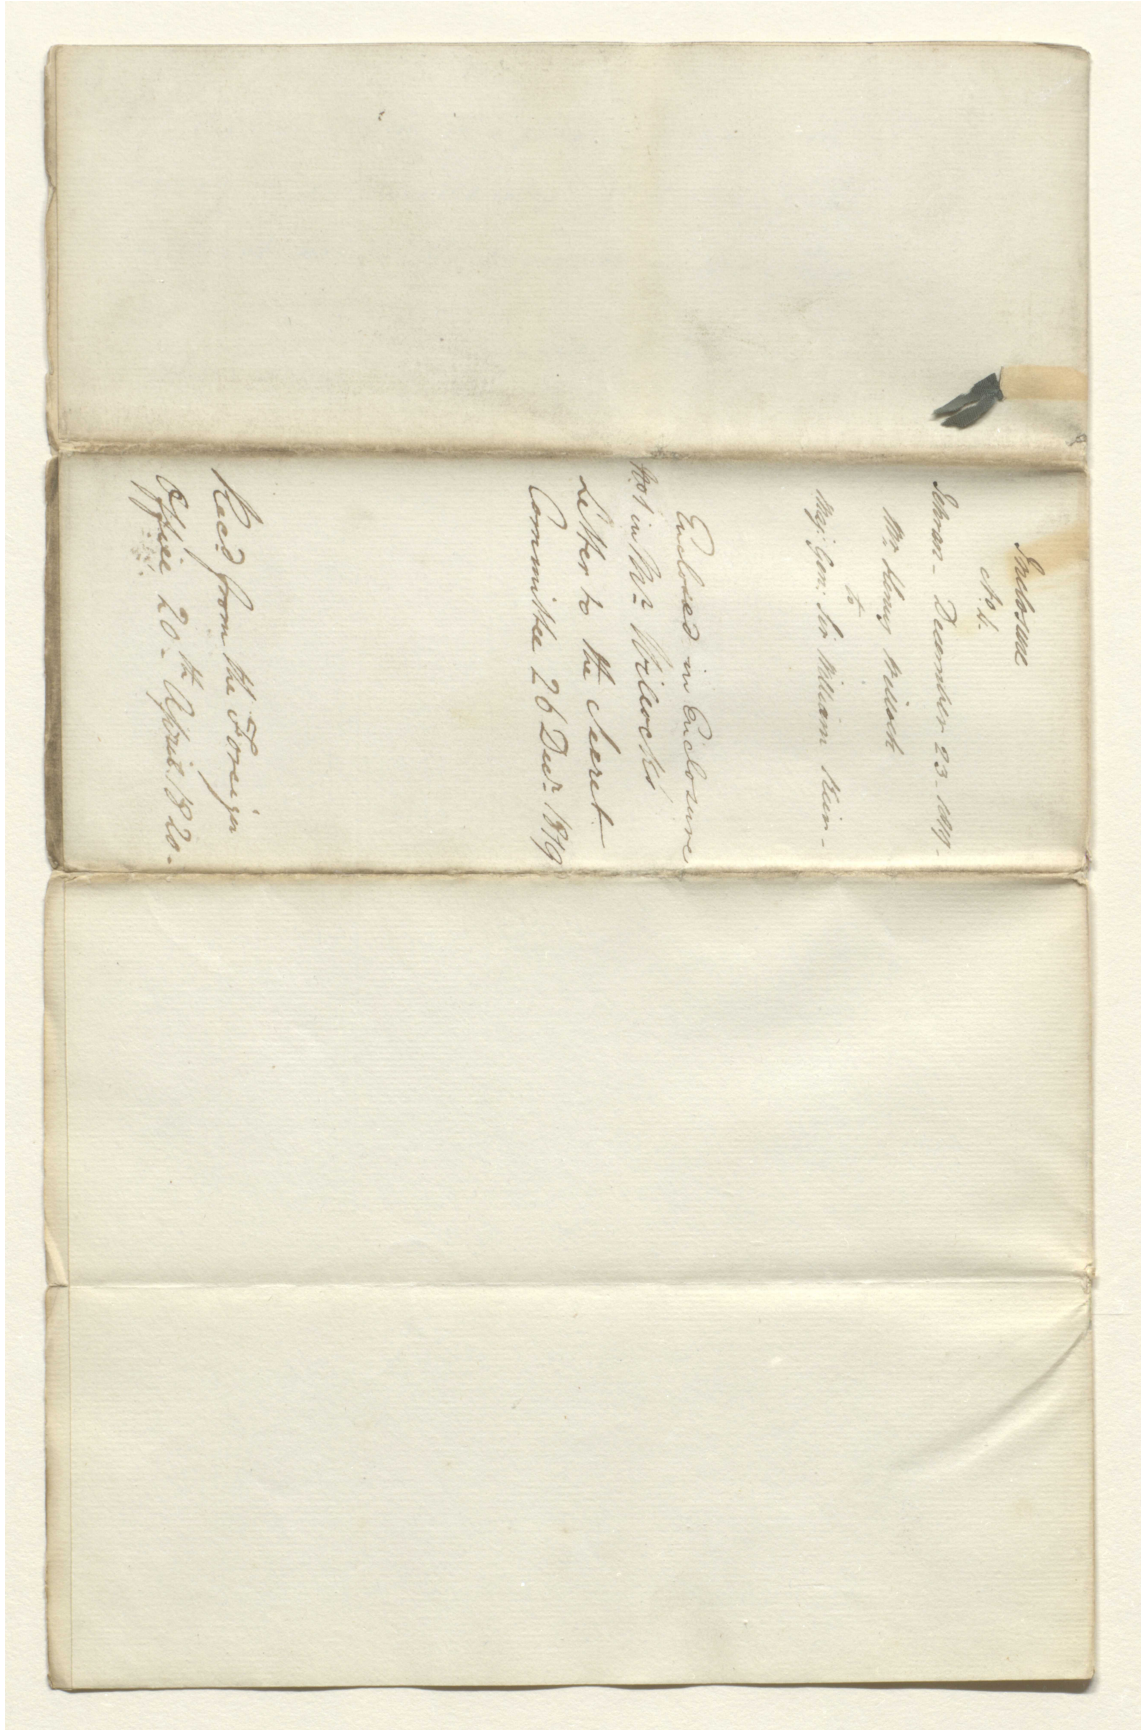 Inclosure
No. 4.
Tehran - December 23 - 1819 -
Mr. Henry Willock
to
Maj: Gen: Sir William Keir -
Enclosed in Enclosure
No 1 in Mr. Willock's
Letter to the Secret
Committee 26 Decr. 1819
Recd from the Foreign
Office, 20th April 1820 -